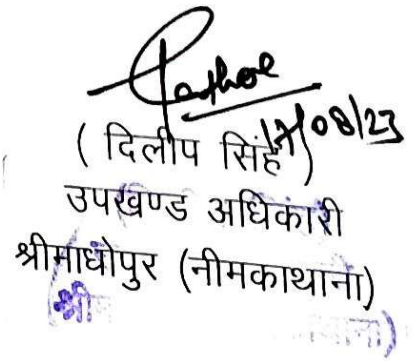 17/08/23
( दिलीप सिंह )
उपखण्ड अधिकारी
श्रीमाधोपुर (नीमकाथाना)